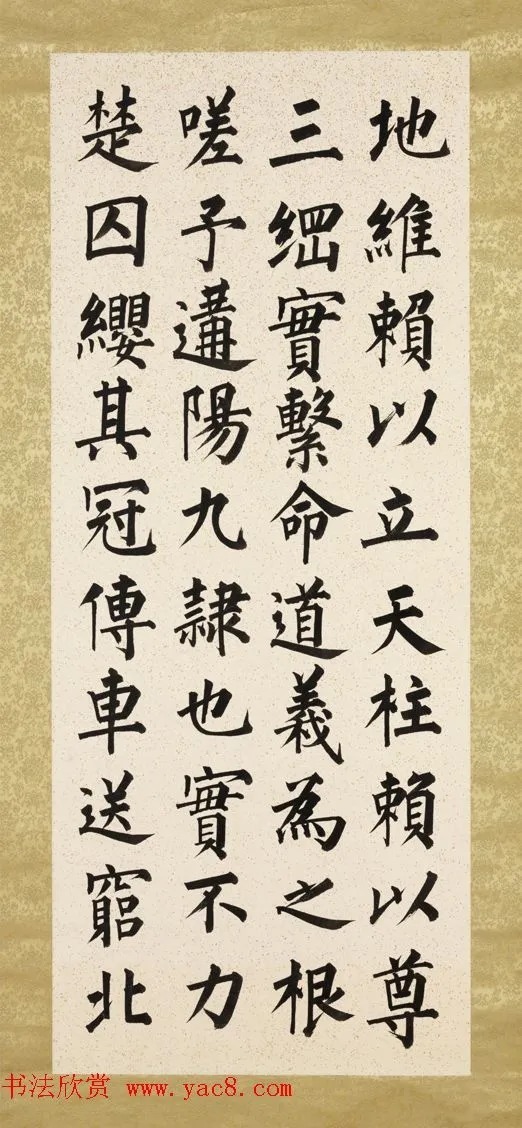 地維賴以立天柱賴以尊
三綱實繫命道義為之根
嗟予遘陽九隷也實不力
楚囚纓其冠傳車送窮北
书法欣赏 www.yac8.com